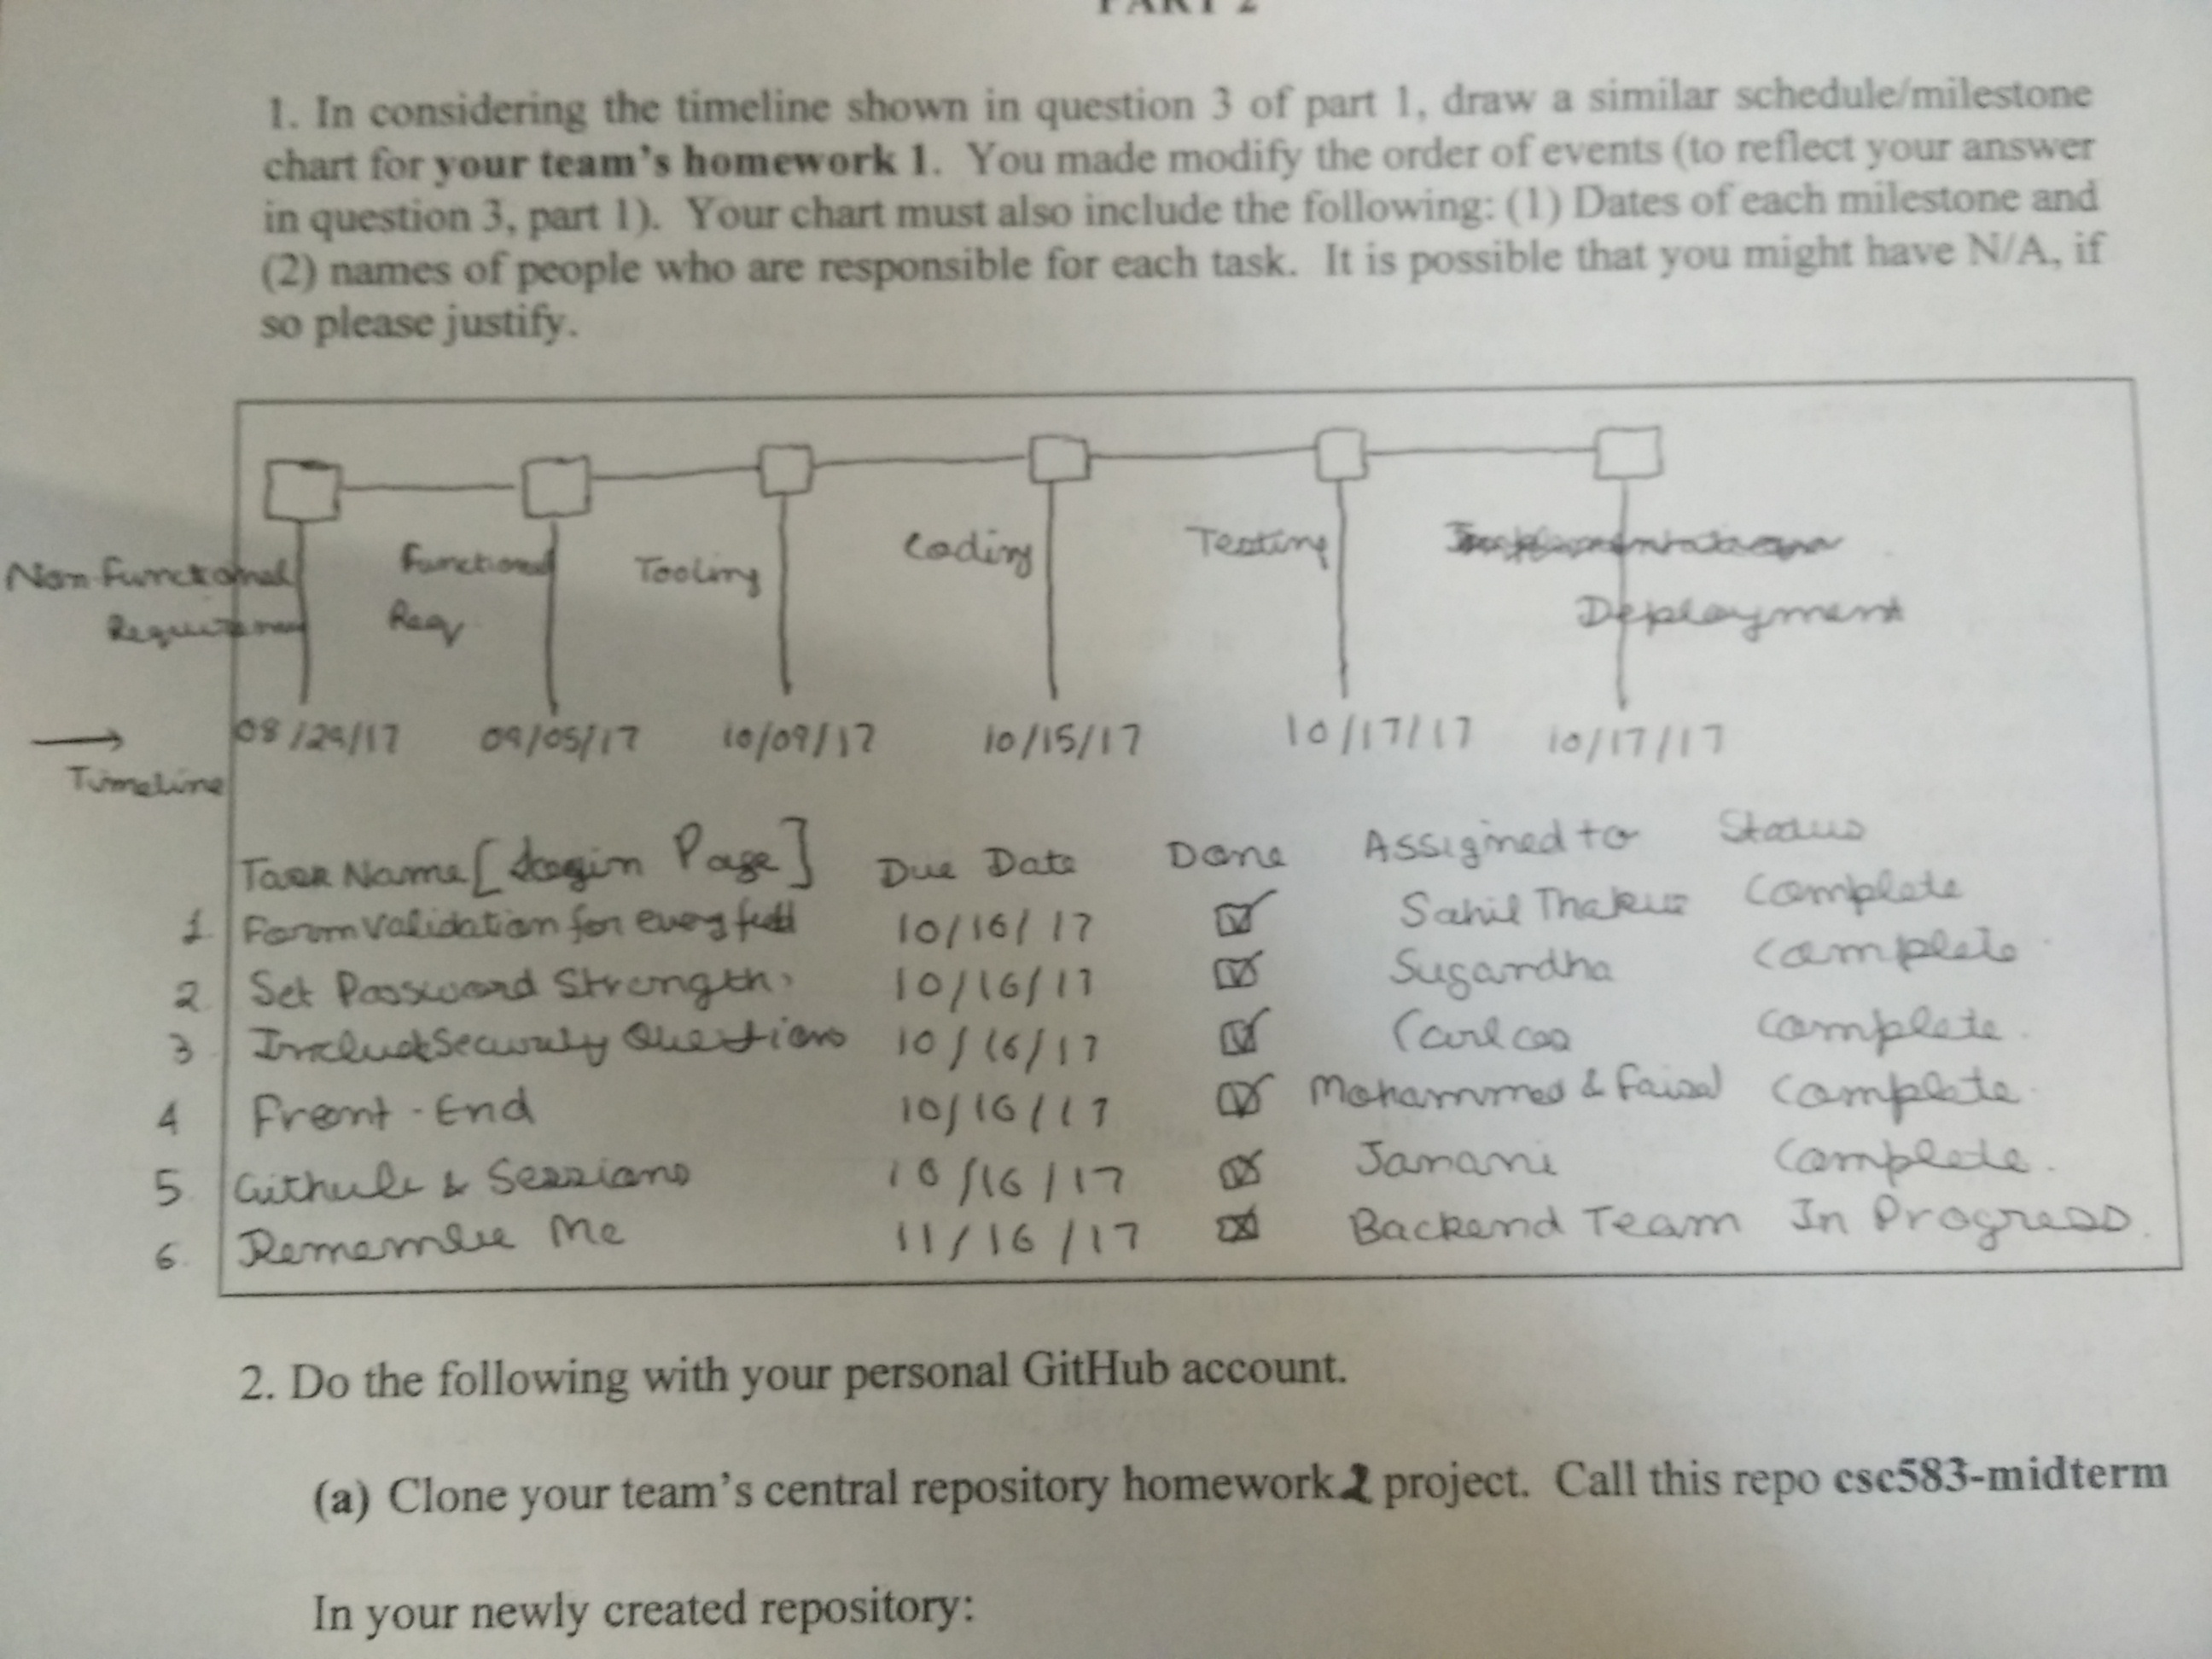 PART 2
1. In considering the timeline shown in question 3 of part 1, draw a similar schedule/milestone
chart for your team's homework 1. You made modify the order of events (to reflect your answer
in question 3, part 1). Your chart must also include the following: (1) Dates of each milestone and
(2) names of people who are responsible for each task. It is possible that you might have N/A, if
so please justify.
Non-Functional Requirement
Functional Req
Tooling
Coding
Testing
Deployment
08/29/17 09/05/17 10/09/17 10/15/17 10/17/17 10/17/17
→ Timeline
Task Name [Login Page] Due Date Done Assigned to Status
1 Form Validation for every field 10/16/17 ☑ Sahil Thakur Complete
2. Set Password Strength 10/16/17 ☑ Sugandha Complete
3 Include Security Questions 10/16/17 ☑ Carlos Complete.
4 Front-End 10/16/17 ☑ Mohammed & Faisal Complete.
5 Github & Sessions 10/16/17 ☑ Janani Complete.
6. Remember Me 11/16/17 ☒ Backend Team In Progress.
2. Do the following with your personal GitHub account.
(a) Clone your team's central repository homework 2 project. Call this repo csc583-midterm
In your newly created repository: